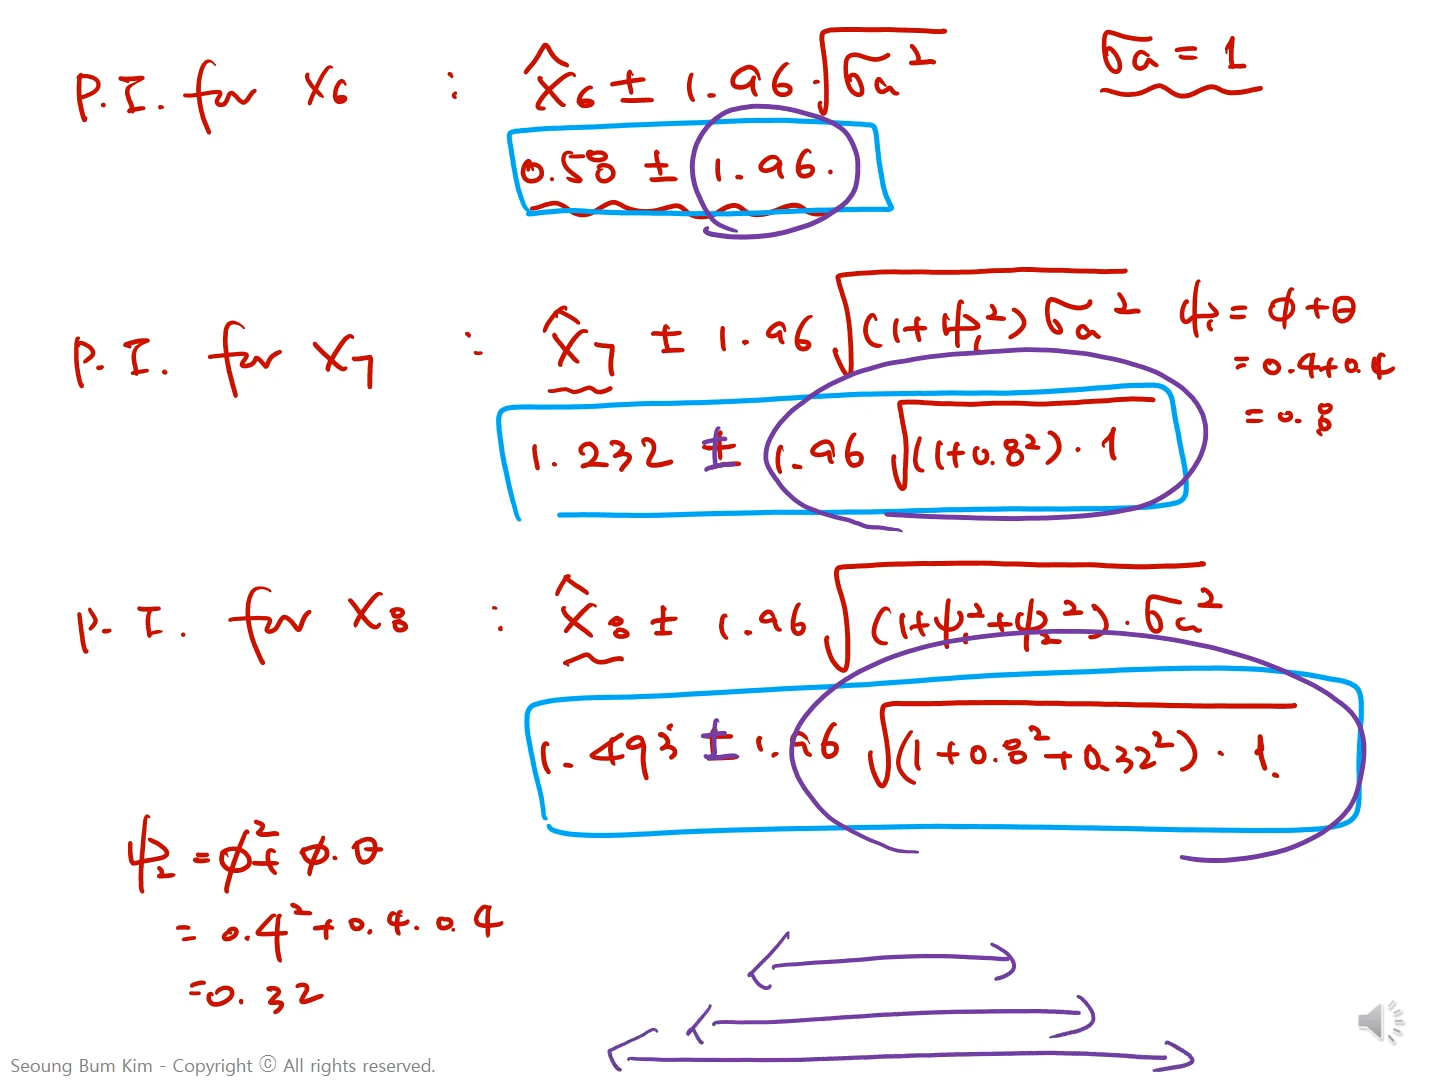 P.I. for X₆ : X̂₆ ± 1.96·√σa² σa = 1
0.58 ± 1.96.
P.I. for X₇ : X̂₇ ± 1.96 √(1+ψ₁²) σa² ψ₁ = φ+θ
= 0.4+0.4
= 0.8
1.232 ± 1.96 √(1+0.8²)·1
P.I. for X₈ : X̂₈ ± 1.96 √(1+ψ₁²+ψ₂²)·σa²
1.493 ± 1.96 √(1+0.8²+0.32²)·1.
ψ₂ = φ²+φ·θ
= 0.4²+0.4·0.4
=0.32
Seoung Bum Kim - Copyright ⓒ All rights reserved.